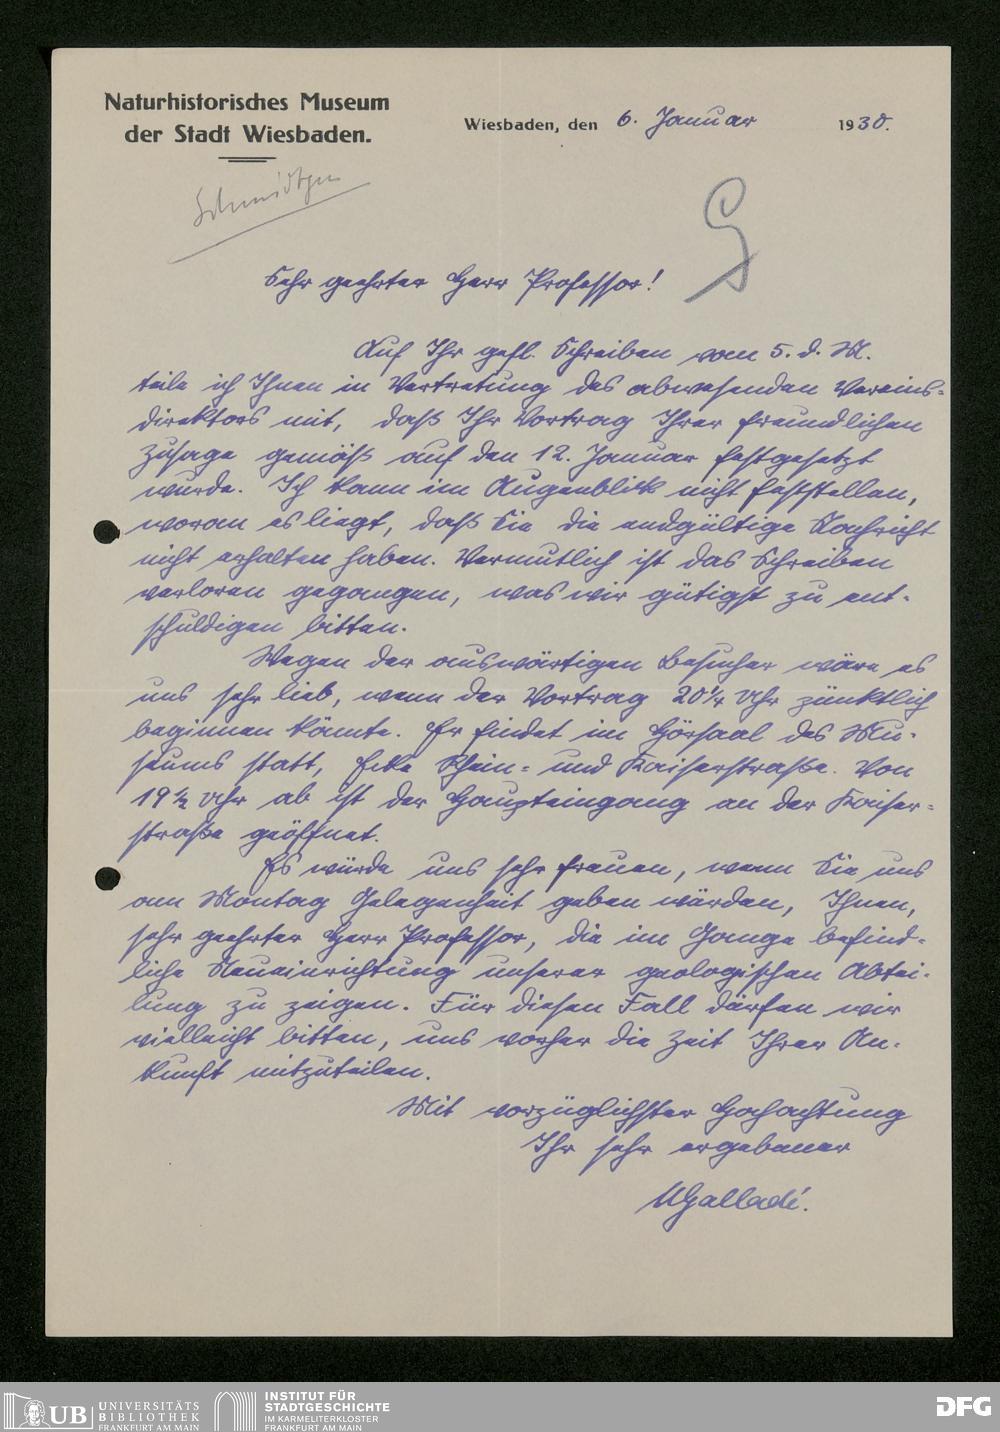 Naturhistorisches Museum
der Stadt Wiesbaden.
Wiesbaden, den 6. Januar 1930.
Schmidtgen
Sehr geehrter Herr Professor!
Auf Ihr gefl. Schreiben vom 5. d. M.
teile ich Ihnen in Vertretung des abwesenden Vereins-
direktors mit, daß Ihr Vortrag Ihrer freundlichen
Zusage gemäß auf den 12. Januar festgesetzt
wurde. Ich kann im Augenblick nicht feststellen,
woran es liegt, daß Sie die endgültige Nachricht
nicht erhalten haben. Vermutlich ist das Schreiben
verloren gegangen, was wir gütigst zu ent-
schuldigen bitten.
Wegen der auswärtigen Besucher wäre es
uns sehr lieb, wenn der Vortrag 20¼ Uhr pünktlich
beginnen könnte. Er findet im Hörsaal des Mu-
seums statt, Ecke Rhein- und Kaiserstraße. Von
19½ Uhr ab ist der Haupteingang an der Kaiser-
straße geöffnet.
Es würde uns sehr freuen, wenn Sie uns
am Montag Gelegenheit geben würden, Ihnen,
sehr geehrter Herr Professor, die im Gange befind-
liche Neueinrichtung unserer geologischen Abtei-
lung zu zeigen. Für diesen Fall dürfen wir
vielleicht bitten, uns vorher die Zeit Ihrer An-
kunft mitzuteilen.
Mit vorzüglichster Hochachtung
Ihr sehr ergebener
UB UNIVERSITÄTS
BIBLIOTHEK
FRANKFURT AM MAIN
INSTITUT FÜR
STADTGESCHICHTE
IM KARMELITERKLOSTER
FRANKFURT AM MAIN
DFG